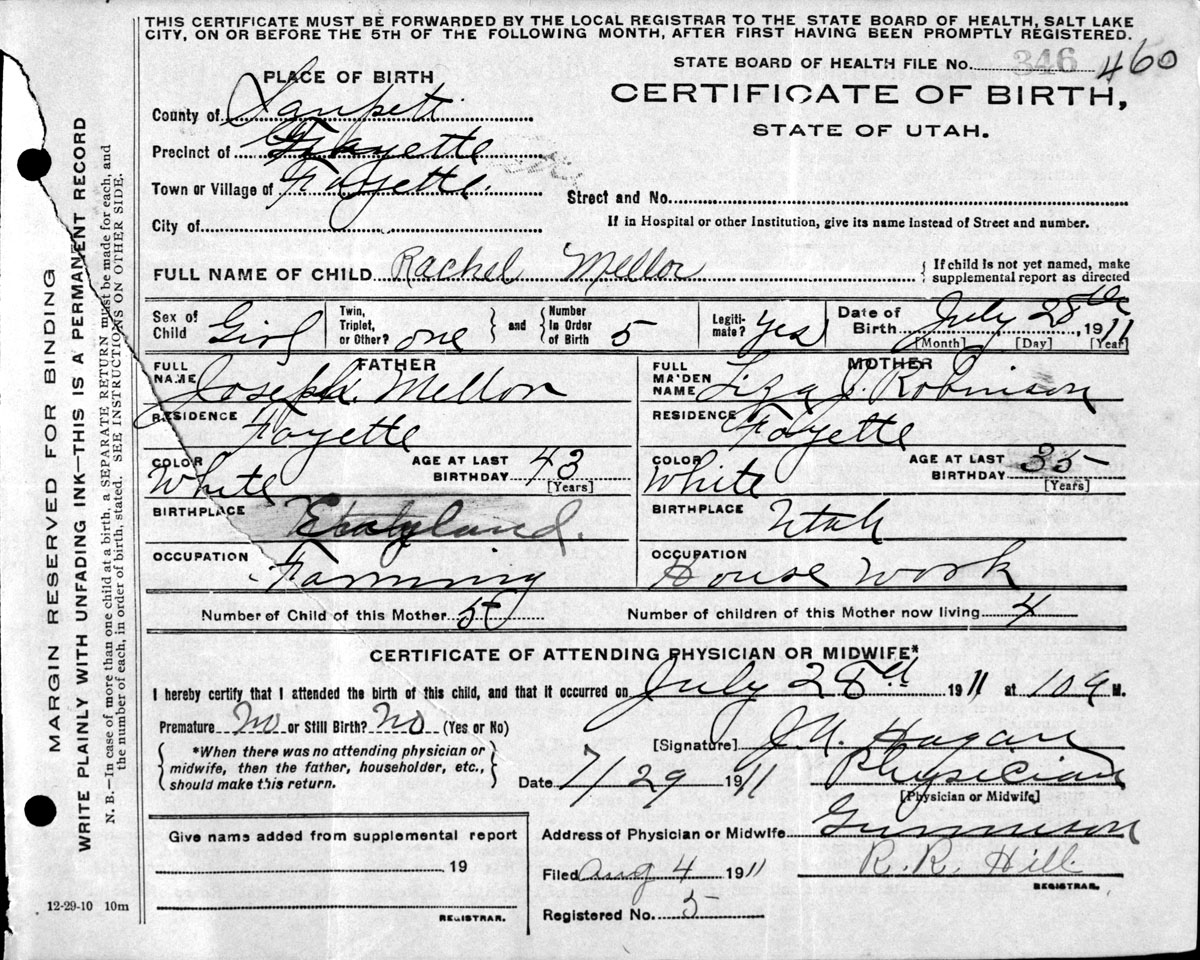 THIS CERTIFICATE MUST BE FORWARDED BY THE LOCAL REGISTRAR TO THE STATE BOARD OF HEALTH, SALT LAKE
CITY, ON OR BEFORE THE 5TH OF THE FOLLOWING MONTH, AFTER FIRST HAVING BEEN PROMPTLY REGISTERED.
STATE BOARD OF HEALTH FILE No. 346 460
PLACE OF BIRTH
CERTIFICATE OF BIRTH,
STATE OF UTAH.
County of Sanpete
Precinct of Fayette
Town or Village of Fayette.
Street and No.
City of
If in Hospital or other Institution, give its name instead of Street and number.
FULL NAME OF CHILD Rachel Mellor
{If child is not yet named, make
supplemental report as directed
Sex of Child Girl
Twin, Triplet, or Other? one } and { Number in Order of Birth 5
Legitimate? Yes
Date of Birth July 28th, 1911
[Month] [Day] [Year]
FATHER
FULL NAME Joseph Mellor
MOTHER
FULL MAIDEN NAME Liza J. Robinson
RESIDENCE Fayette
RESIDENCE Fayette
COLOR White
AGE AT LAST BIRTHDAY 43
[Years]
COLOR White
AGE AT LAST BIRTHDAY 35
[Years]
BIRTHPLACE England.
BIRTHPLACE Utah
OCCUPATION Farming
OCCUPATION House Work
Number of Child of this Mother 5
Number of children of this Mother now living 4
CERTIFICATE OF ATTENDING PHYSICIAN OR MIDWIFE*
I hereby certify that I attended the birth of this child, and that it occurred on July 28th 1911 at 10 a M.
Premature No or Still Birth? No (Yes or No)
{*When there was no attending physician or
midwife, then the father, householder, etc.,
should make this return.}
[Signature] J. N. Hagan
Date 7/29 1911
Physician
[Physician or Midwife]
Give name added from supplemental report
19
REGISTRAR.
Address of Physician or Midwife Gunnison
Filed Aug 4 1911
R. R. Hill
REGISTRAR.
Registered No. 5
12-29-10 10m
MARGIN RESERVED FOR BINDING
WRITE PLAINLY WITH UNFADING INK—THIS IS A PERMANENT RECORD
N. B.—In case of more than one child at a birth, a SEPARATE RETURN must be made for each, and
the number of each, in order of birth, stated. SEE INSTRUCTIONS ON OTHER SIDE.